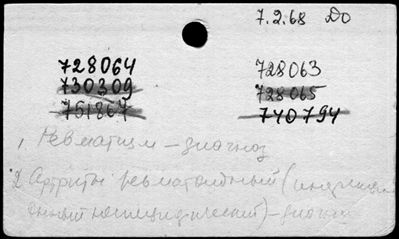 7.2.68 До
728064 728063
730309 728065
751867 740794
1. Ревматизм – диагноз
2 Артриты ревматоидный (инфекцион
ный неспецифический) – диагноз